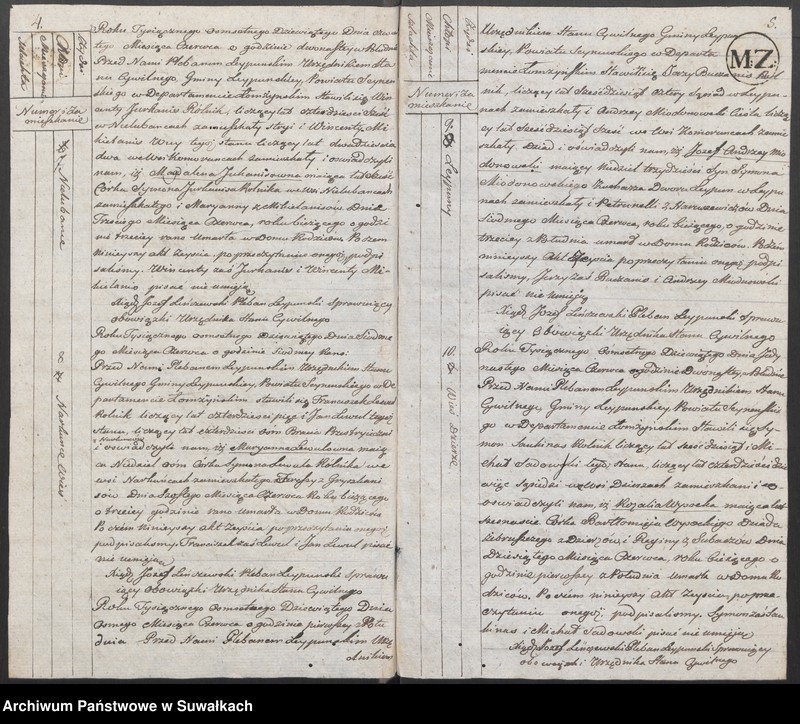 4.
Zeyście
Małżeń
Numer i Za-
mieszkanie
7
Nulubance
Roku Tysiącznego Osmsetnego Dziewiątego Dnia
tego Miesiąca Czerwca o godzinie dwonastey w Południe
Przed Nami Plebanem Leypunskim Urzędnikiem Sta-
nu Cywilnego, Gminy Leypunskiey, Powiatu Seynen-
skiego w Departamencie Łomżyńskim stawili się Win-
centy Jurkanis Rolnik, liczący lat czterdzieści Sześć
w Nulubancach zamieszkały Stryi i Wincenty Mi-
kielanis Wuy tegoż stanu liczący lat dwadzieścia
dwa we Wsi Komorancach zamieszkały i oświadczyli
nam, iż Magdalena Jurkanisowna maiąca lat
Córka Symona Jurkanisa Rolnika we Wsi Nulubancach
zamieszkałego i Maryanny z Mikielanisow Dnia
Trzeciego Miesiąca Czerwca, roku bieżącego o godzi-
nie trzeciey rano Umarła w Domu Rodzicow. Poczem
ninieyszy Akt Zeyścia, po przeczytaniu onegoż podpi-
saliśmy. Wincenty zaś Jurkanis i Wincenty Mi-
kielanis pisać nie umieią
Xiądz Jozef Leszczewski Pleban Leypunski Sprawuiący
obowiązki Urzędnika Stanu Cywilnego
8
Narkunce Wieś
Roku Tysiącznego Osmsetnego Dziewiątego Dnia Siódme-
go Miesiąca Czerwca o godzinie Siodmey Rano
Przed Nami Plebanem Leypunskim Urzędnikiem Stanu
Cywilnego Gminy Leypunskiey, Powiatu Seynenskiego w De-
partamencie Łomżyńskim stawili się Franciszek Lewul
Rolnik liczący lat czterdzieści pięć i Jan Lewul tegoż
Stanu, liczący lat czterdzieści osm Bracia
i oświadczyli nam, iż Maryanna Lewulowna maią-
ca Niedziel osm Córka Symona Lewula Rolnika we
wsi Narkuncach zamieszkałego i Terefsy z Gryszkani-
sow Dnia Szostego Miesiąca Czerwca Roku bieżącego
o trzeciey godzinie rano Umarła w Domu Rodzicow
Poczem ninieyszy Akt Zeyścia po przeczytaniu onegoż
podpisaliśmy. Franciszek zaś Lewul i Jan Lewul pisać
nie umieią
Xiądz Jozef Leszczewski Pleban Leypunski Sprawu-
iący obowiązki Urzędnika Stanu Cywilnego
Roku Tysiącznego Osmsetnego Dziewiątego Dnia
osmego Miesiąca Czerwca o godzinie pierwszey z Połu-
dnia Przed Nami Plebanem Leypunskim Urzę-
dnikiem
5.
M:Z:
Numer i Za-
mieszkanie
9.
Leypuny
Urzędnikiem Stanu Cywilnego Gminy Leypun-
skiey, Powiatu Seynenskiego w Departa-
mencie Łomżyńskim Stawili się Jerzy Buczanis Rol-
nik, liczący lat Sześćdziesiąt cztery Sąsiad w Leypu-
nach zamieszkały i Andrzey Miodonowski Cieśla liczą-
cy lat Sześćdziesiąt Sześć we Wsi Komorancach zamie-
szkały Dziad i oświadczyli nam, iż Jozef Andrzey Mio-
donowski maiący Niedziel trzydzieści Syn Symona
Miodonowskiego Kucharza Dworu Leypun w Leypu-
nach zamieszkały i Petruneli z Naruszewiczow Dnia
Siodmego Miesiąca Czerwca, roku bieżącego, o godzinie
trzeciey z Południa umarł w Domu Rodzicow. Poczem
ninieyszy Akt Zeyścia po przeczytaniu onegoż podpi-
saliśmy, Jerzy zaś Buczanis i Andrzey Miodonowski
pisać nie umieią
Xiądz Jozef Leszczewski Pleban Leypunski Sprawu-
iący Obowiązki Urzędnika Stanu Cywilnego
10.
Wieś Dzierze
Roku Tysiącznego, Osmsetnego Dziewiątego Dnia Jedy-
nastego Miesiąca Czerwca o godzinie Dwonastey w Południe
Przed Nami Plebanem Leypunskim Urzędnikiem Stanu
Cywilnego, Gminy Leypunskiey Powiatu Seynenskie-
go w Departamencie Łomżyńskim Stawili się Sy-
mon Saukinas Rolnik liczący lat Sześćdziesiąt i Mi-
chał Sadowski tegoż Stanu, liczący lat czterdzieści dzie-
więć Sąsiedzi we Wsi Dzierzach zamieszkani i o-
świadczyli nam, iż Rozalia Wysocka maiąca lat
Szesnascie Córka Bartłomieia Wysockiego Dziada
żebruiącego z Dzierzow i Reginy z Dnia
Dziesiątego Miesiąca Czerwca, roku bieżącego o
godzinie pierwszey z Południa umarła w Domu Ro-
dzicow. Poczem ninieyszy Akt Zeyścia, po prze-
czytaniu onegoż podpisaliśmy. Symon zaś Sau-
kinas i Michał Sadowski pisać nie umieią
Xiądz Jozef Leszczewski Pleban Leypunski Sprawuiący
obowiązki Urzędnika Stanu Cywilnego
Archiwum Państwowe w Suwałkach